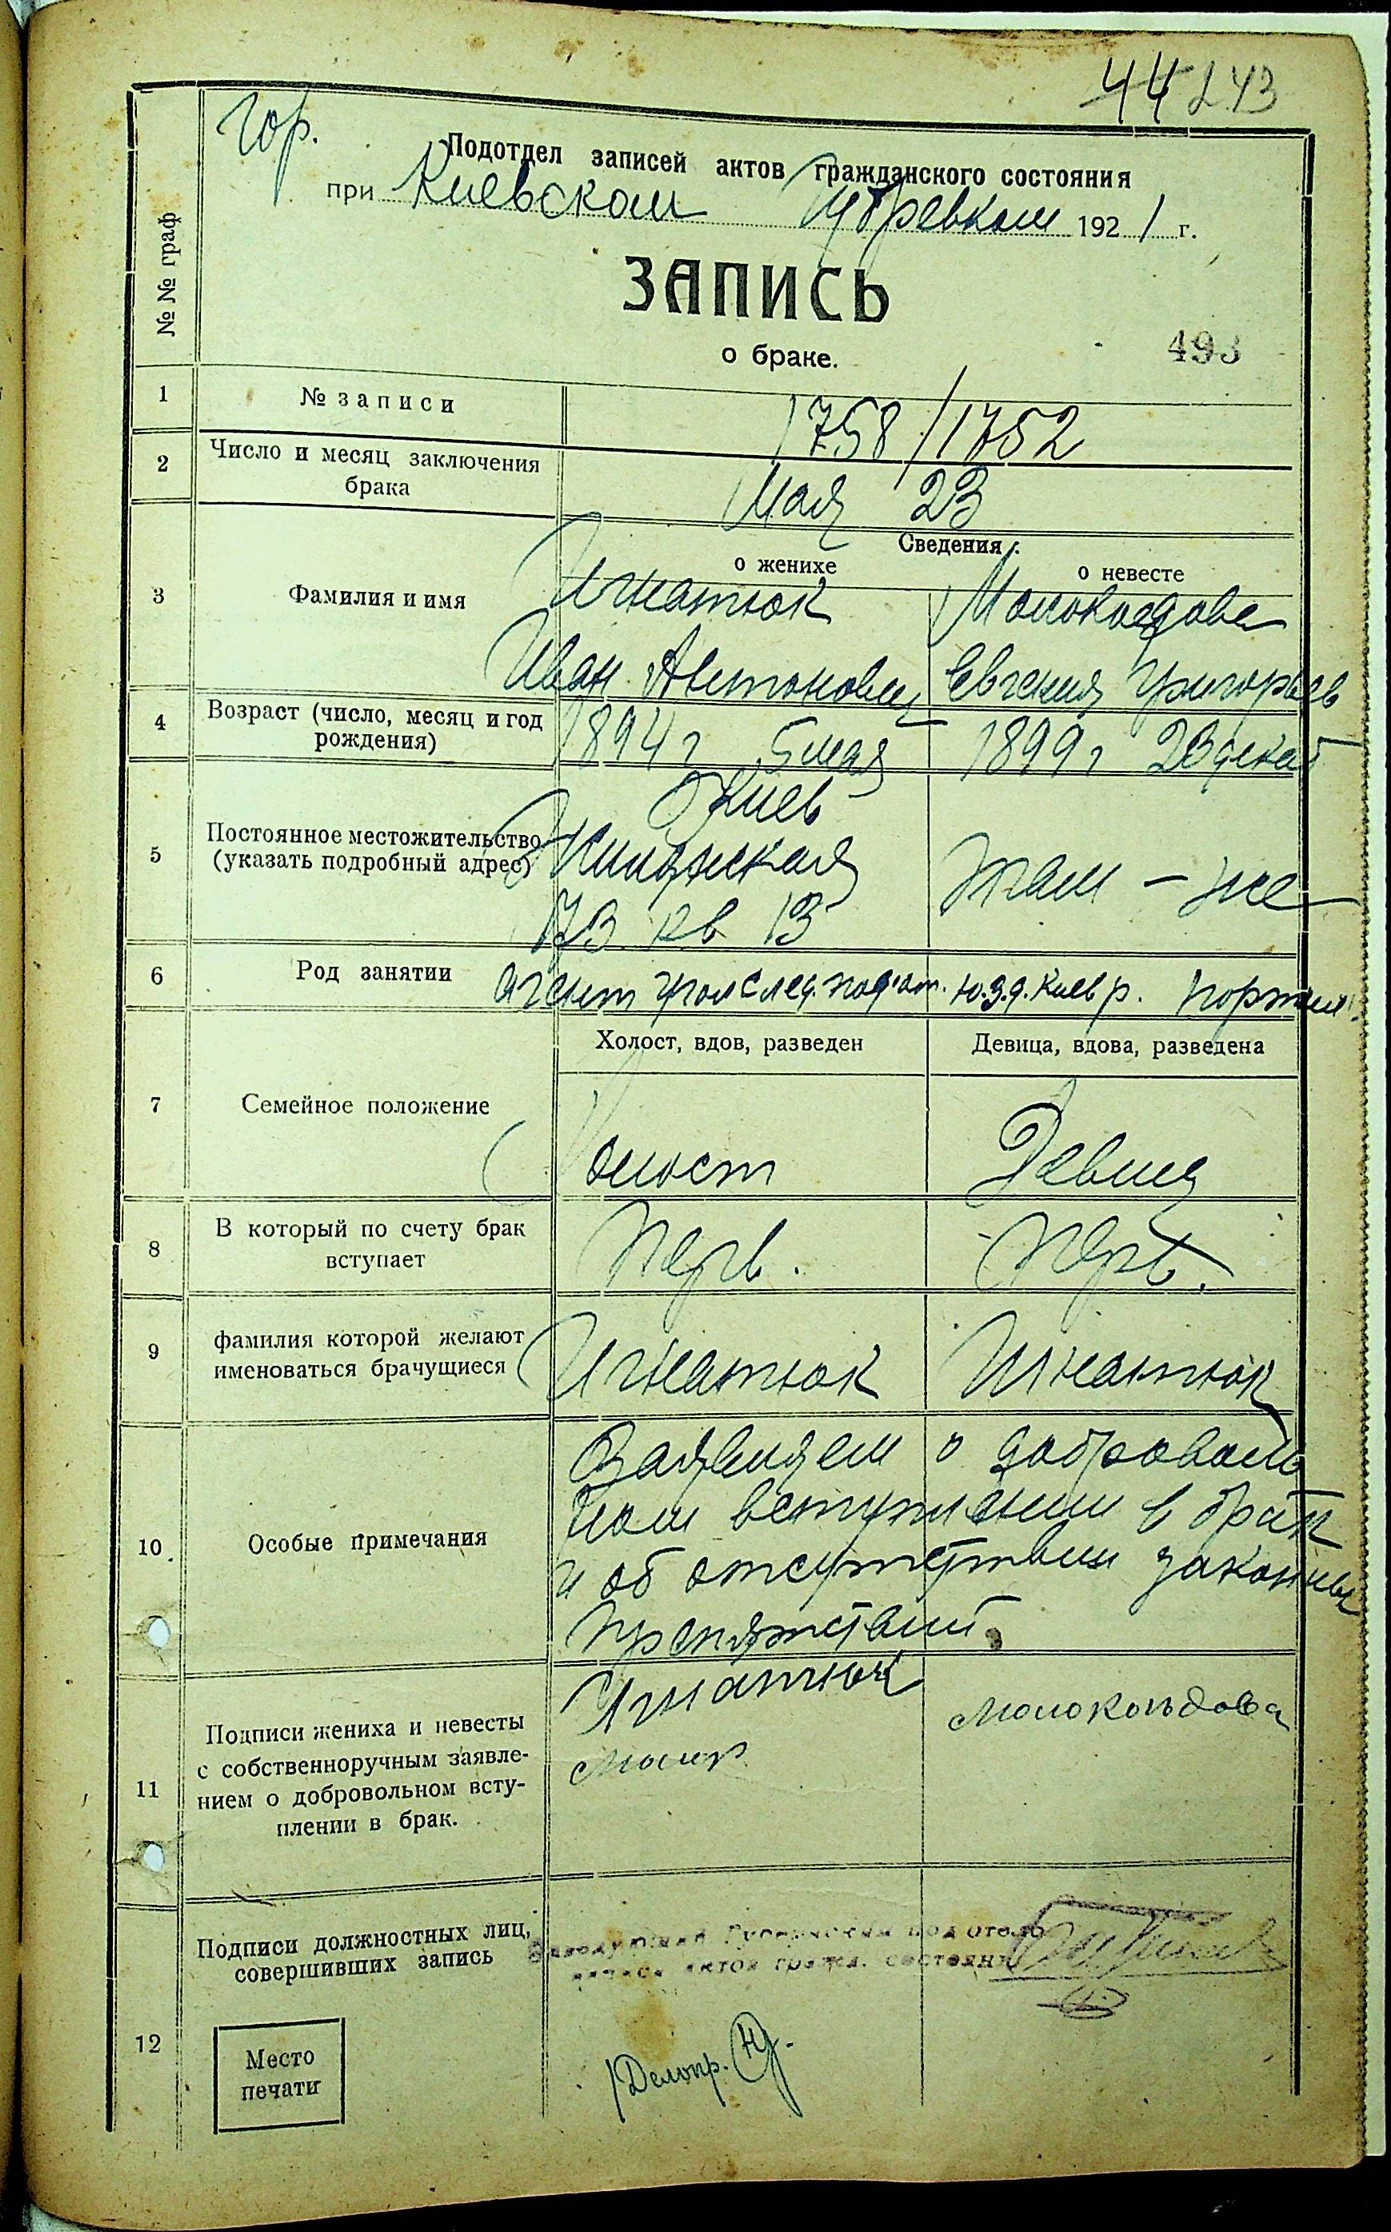 44 243
гор.
Подотдел записей актов гражданского состояния
при Киевском Губревком 1921 г.
№№ граф
ЗАПИСЬ
о браке.
493
1 № записи 1758/1752
2 Число и месяц заключения
брака
Мая 23
Сведения:
о женихе о невесте
3 Фамилия и имя
Игнатюк
Иван Антонович Евгения Григорьев
4 Возраст (число, месяц и год
рождения)
1894 г 5 мая 1899 г 23 декаб
5 Постоянное местожительство
(указать подробный адрес)
Киев
73 кв 13
Там - же
6 Род занятии
агент
Холост, вдов, разведен Девица, вдова, разведена
7 Семейное положение
Холост Девица
8 В который по счету брак
вступает
Перв. Перв.
9 фамилия которой желают
именоваться брачущиеся
Игнатюк Игнатюк
10 Особые примечания
Заявляем о доброволь
ном вступлении в брак
и об отсутствии законных
препятствий.
11 Подписи жениха и невесты
с собственноручным заявле-
нием о добровольном всту-
плении в брак.
Игнатюк
12 Подписи должностных лиц,
совершивших запись
Заведующий Губернским подотдело
записи актов гражд. состояни
Делопр.
Место
печати